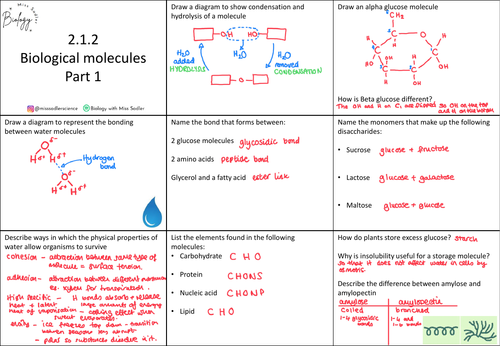 Miss Sedler
Biology
2.1.2
Biological molecules
Part 1
@misssedlerscience
Biology with Miss Sedler
Draw a diagram to show condensation and
hydrolysis of a molecule
OH HO
H₂O
added
HYDROLYSIS
H₂O
H₂O
removed
CONDENSATION
O
Draw an alpha glucose molecule
6
CH₂OH
5
O
H
H
H
4
C
C
1
HO
OH
H
OH
3
2
H
OH
How is Beta glucose different?
The OH and H on C₁ are flipped so OH on the top
and H on the bottom
Draw a diagram to represent the bonding
between water molecules
O δ⁻
H δ⁺ H δ⁺
Hydrogen
bond
O δ⁻
H δ⁺ H δ⁺
Name the bond that forms between:
2 glucose molecules glycosidic bond
2 amino acids peptide bond
Glycerol and a fatty acid ester link
Name the monomers that make up the following
disaccharides:
• Sucrose glucose + fructose
• Lactose glucose + galactose
• Maltose glucose + glucose
Describe ways in which the physical properties of
water allow organisms to survive
cohesion - attraction between same type of
molecules = surface tension
adhesion - attraction between different molecules
eg. xylem for transpiration.
High specific - H bonds absorb + release
heat + latent large amounts of energy
heat of vaporisation - cooling effect when
sweat evaporates.
- ice freezes top down -
- polar so substances dissolve in it.
List the elements found in the following
molecules:
• Carbohydrate C H O
• Protein CHONS
• Nucleic acid CHONP
• Lipid C H O
How do plants store excess glucose? starch
Why is insolubility useful for a storage molecule?
so that it does not affect water in cells by
osmosis
Describe the difference between amylose and
amylopectin
amylose amylopectin
Coiled branched
1-4 glycosidic 1-4 and
bonds 1-6 bonds